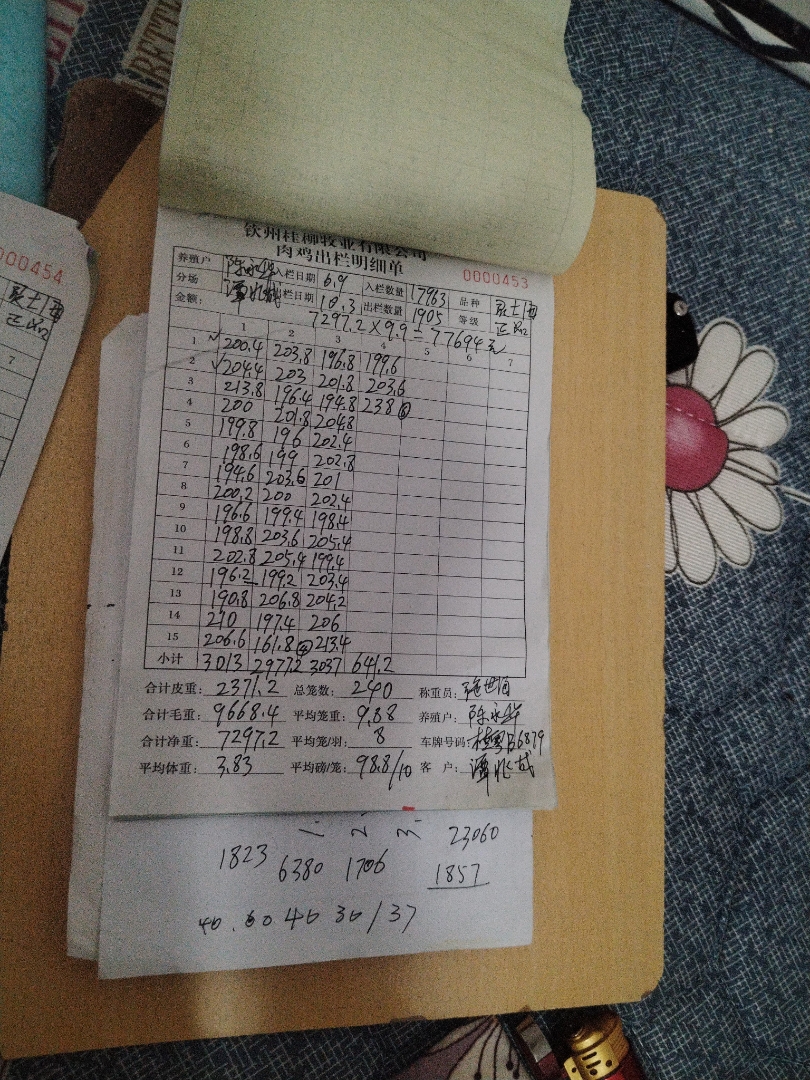 钦州桂柳牧业有限公司
肉鸡出栏明细单
0000453
养殖户 陈永华 入栏日期 6.9 入栏数量 17963 品种
分场 出栏日期 10.3 出栏数量 1905 等级 正品
金额: 7297.2×9.9=77694元
1 2 3 4 5 6 7
1 ✓ 200.4 203.8 196.8 199.6
2 ✓ 204.4 203 201.8 203.6
3 213.8 196.4 194.8 238 ⑥
4 200 201.8 204.8
5 199.8 196 202.4
6 198.6 199 202.8
7 194.6 203.6 201
8 200.2 200 202.4
9 196.6 199.4 198.4
10 198.8 203.6 205.4
11 202.8 205.4 199.4
12 196.2 199.2 203.4
13 190.8 206.8 204.2
14 210 197.4 206
15 206.6 161.8 ④ 213.4
小计 3013 2977.2 3037 641.2
合计皮重: 2371.2 总笼数: 240 称重员:
合计毛重: 9668.4 平均笼重: 9.88 养殖户: 陈永华
合计净重: 7297.2 平均笼/羽: 8 车牌号码:
平均体重: 3.83 平均磅/笼: 98.8/10 客 户:
1. 2. 3. 23060
1823 6380 1706 1857
40.60.40 30/37
000454
正品
7